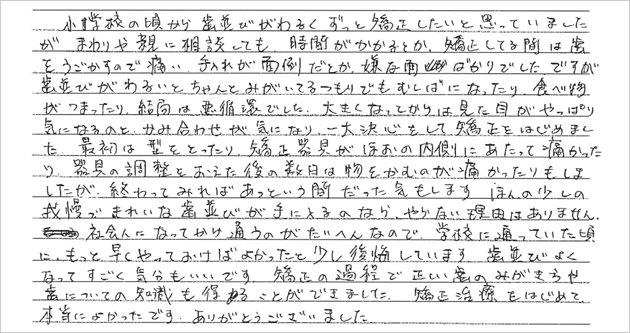 小学校の頃から歯並びがわるくずっと矯正したいと思っていました
が まわりや親に相談しても、時間がかかるとか、矯正してる間は歯
をうごかすので痛い、手入れが面倒だとか、嫌な面ばかりでした。ですが
歯並びがわるいと、ちゃんとみがいてるつもりでもむしばになったり、食べ物
がつまったり、結局は悪循環でした。大きくなってからは見た目がやっぱり
気になるのと、かみ合わせが気になり、一大決心をして矯正をはじめまし
た。最初は型をとったり、矯正器具がほおの内側にあたって痛かった
り、器具の調整をおえた後の数日は物をかむのが痛かったりもしま
したが、終わってみればあっという間だった気もします。ほんの少しの
我慢できれいな歯並びが手に入るのなら、やらない理由はありません。
社会人になってから通うのがたいへんなので、学校に通っていた頃
に、もっと早くやっておけばよかったと少し後悔しています。歯並びよく
なってすごく気分もいいです。矯正の過程で正しい歯のみがき方や
歯についての知識も得ることができました。矯正治療をはじめて
本当によかったです。ありがとうございました。